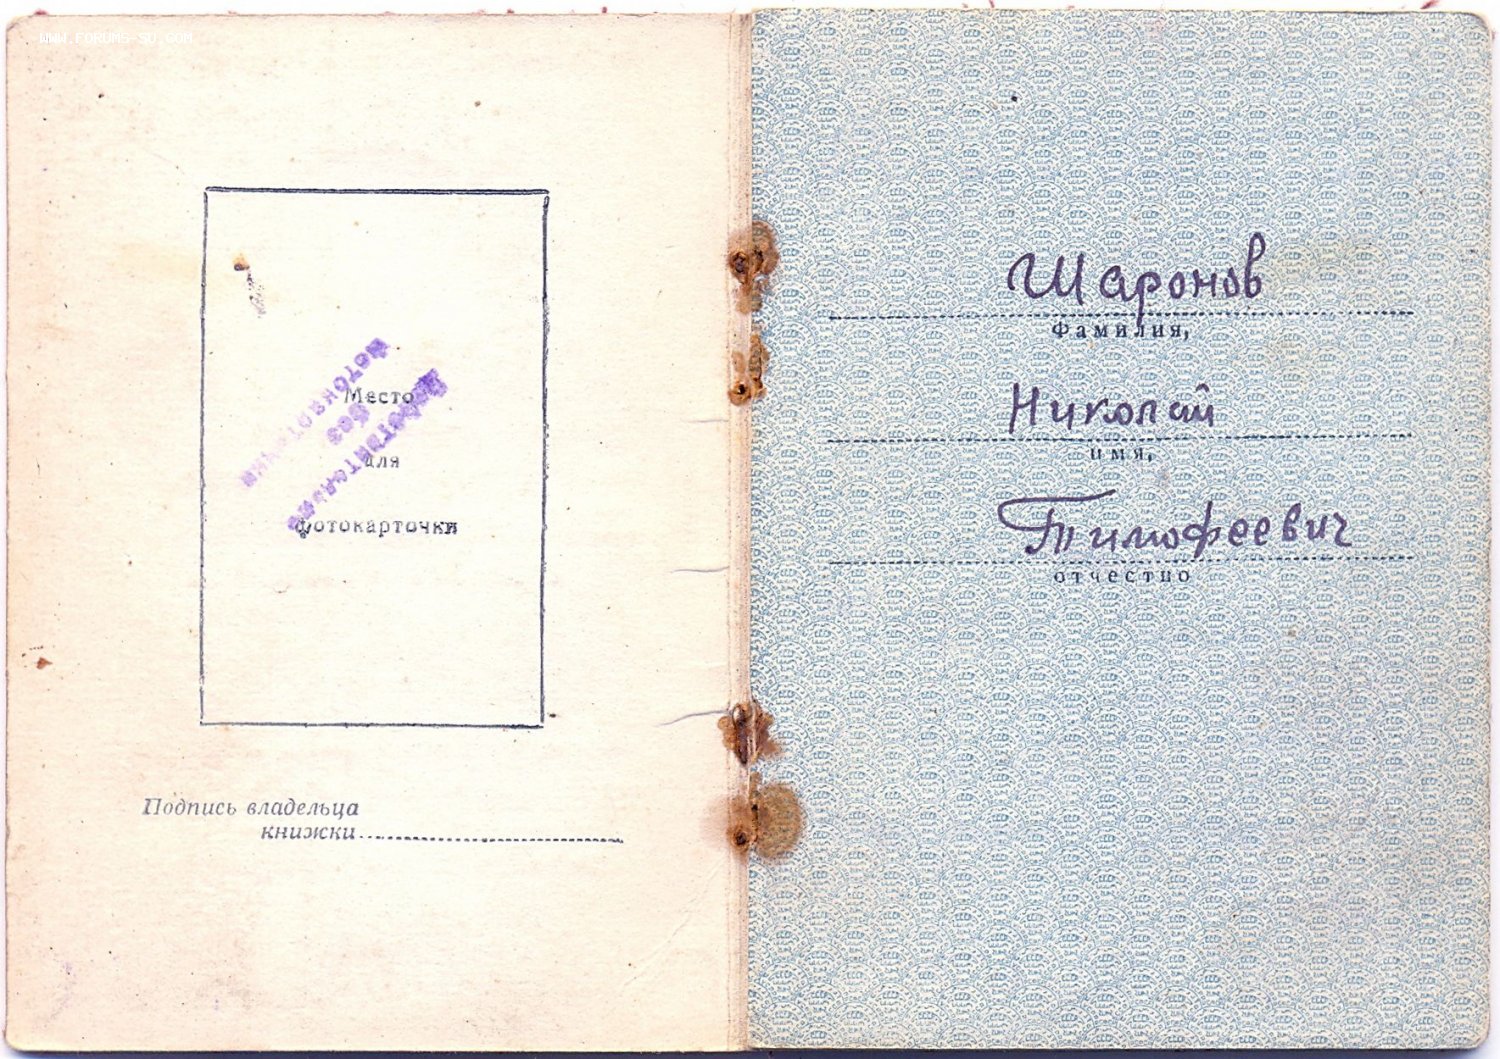 WWW.FORUMS-SU.COM
Место
для
фотокарточки
Действительно
без
фотокарточки
Подпись владельца
книжки
Шаронов
Фамилия,
Николай
имя,
Тимофеевич
отчество